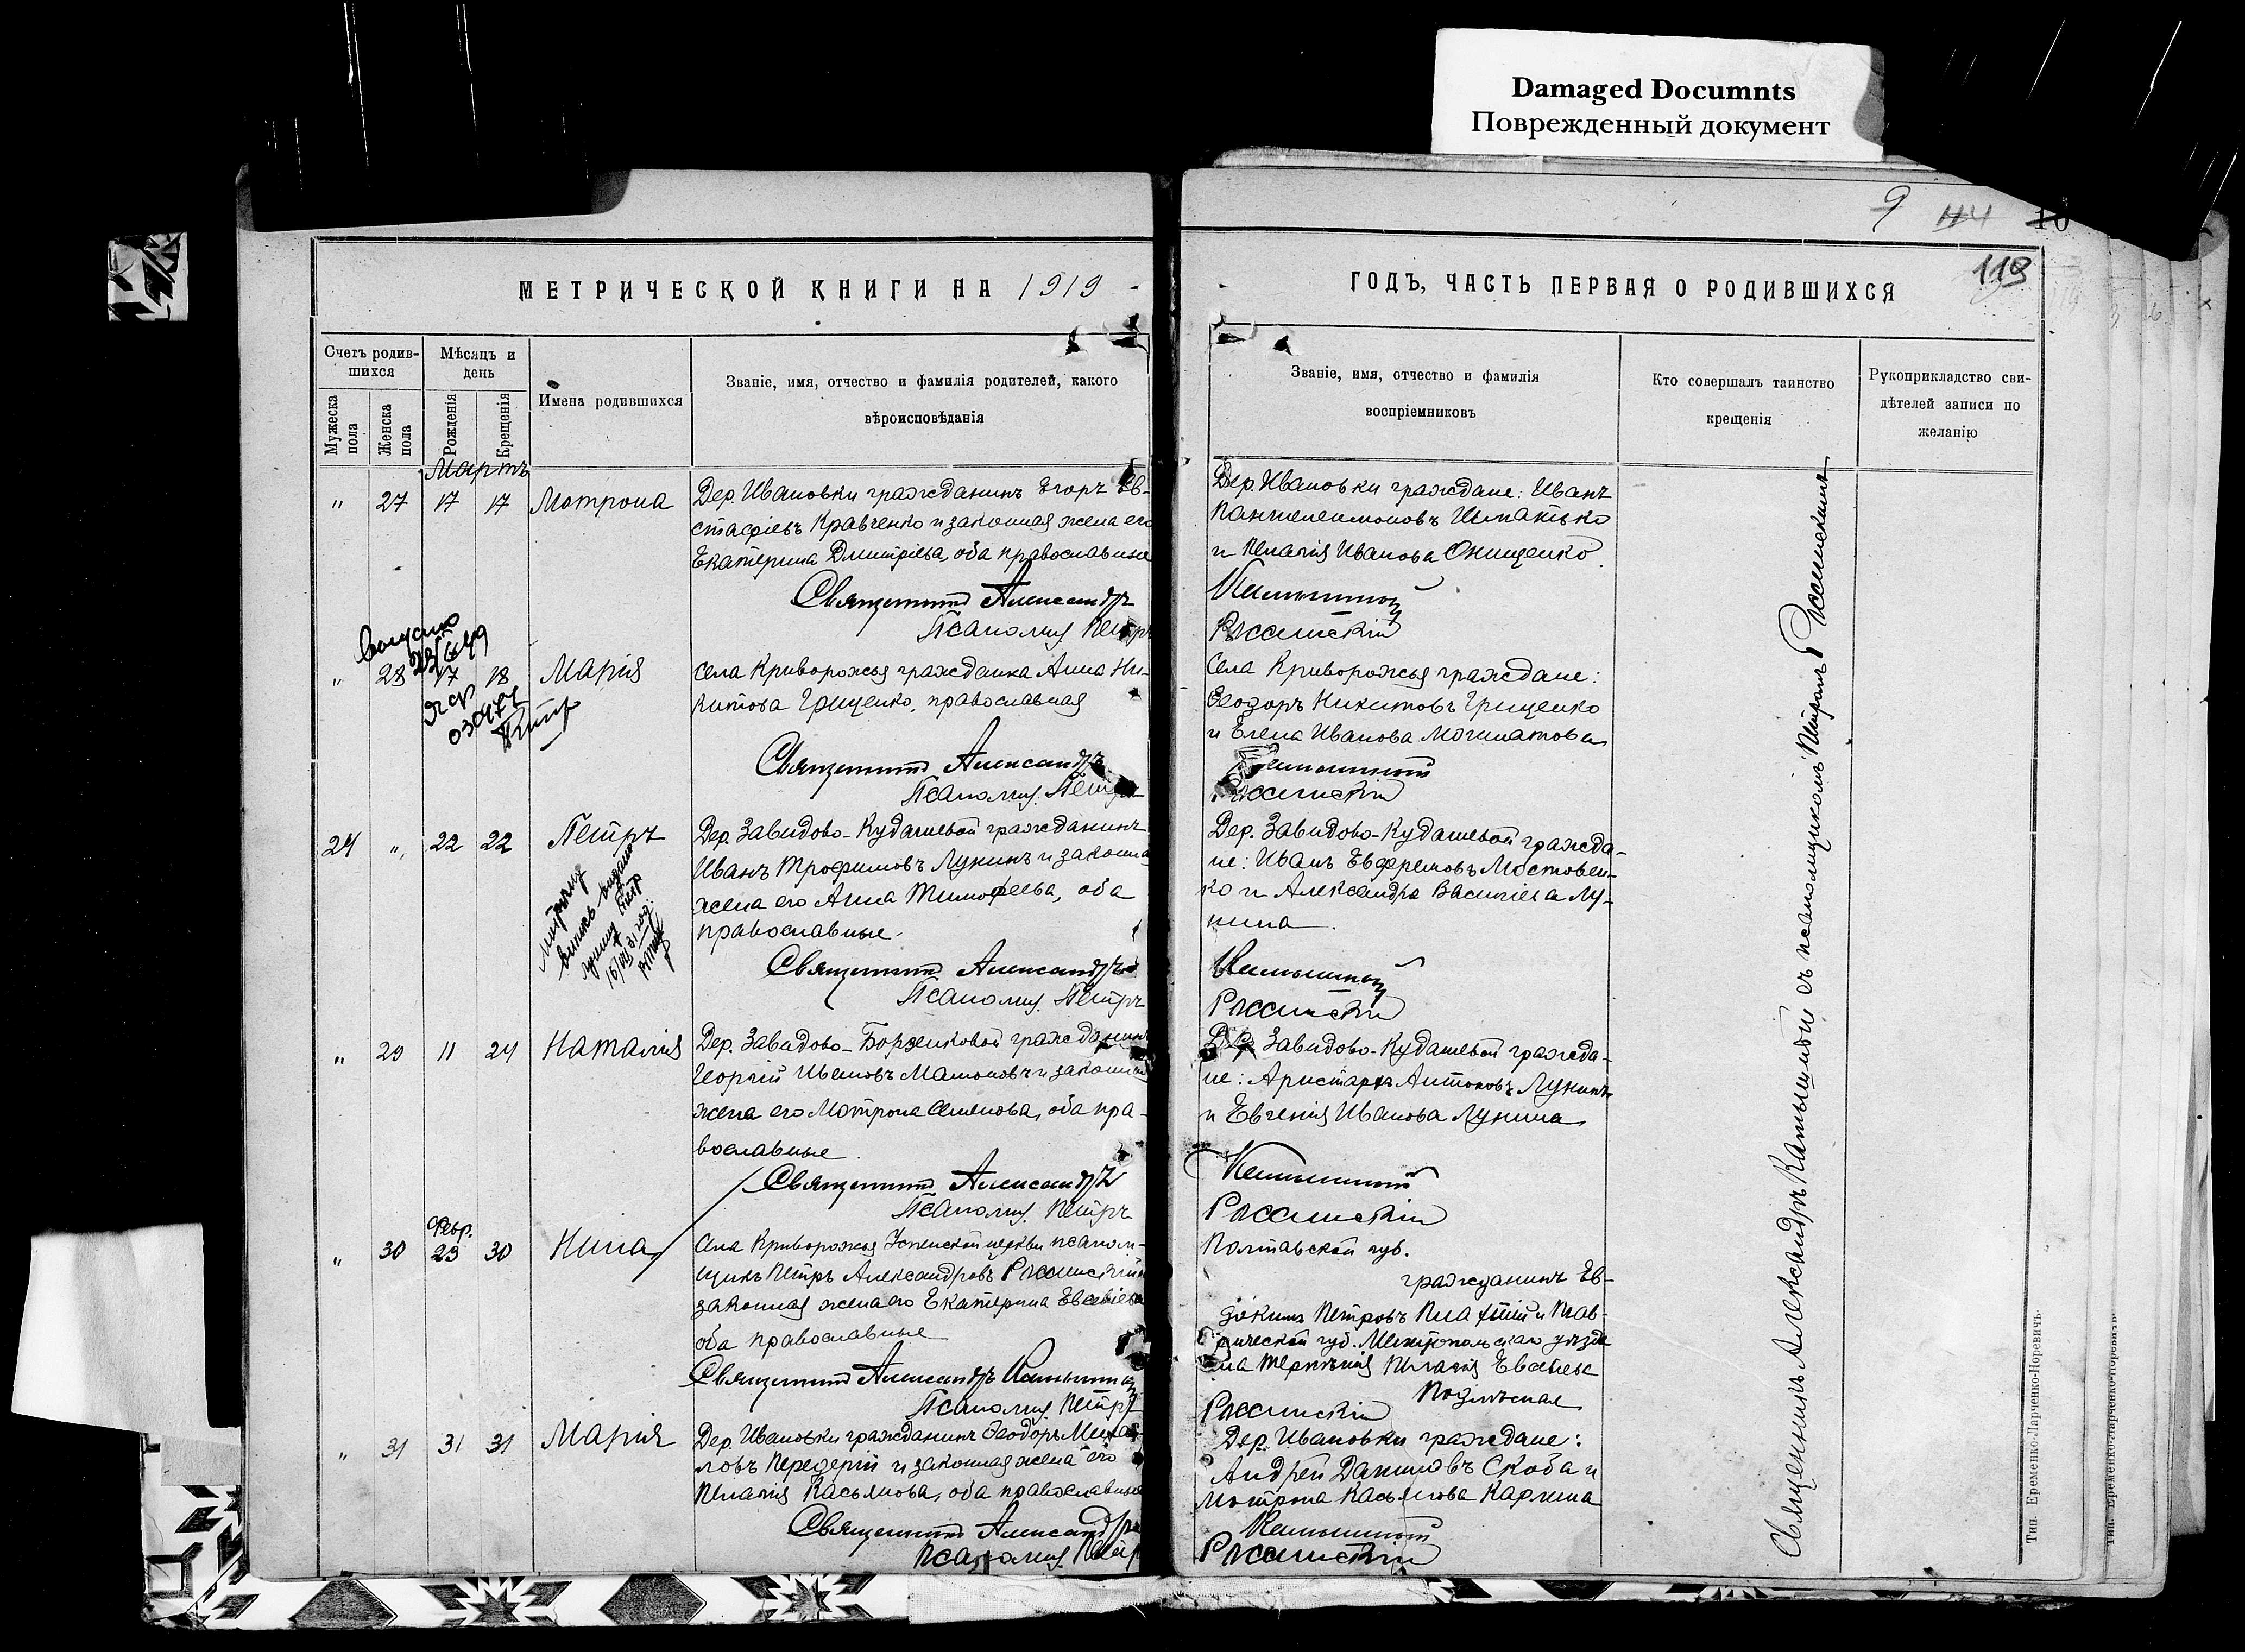 Damaged Documnts
Поврежденный документ
9
119
МЕТРИЧЕСКОЙ КНИГИ НА 1919
ГОДЪ, ЧАСТЬ ПЕРВАЯ О РОДИВШИХСЯ
Счетъ родив-
шихся
Мужеска пола
Женска пола
Мѣсяцъ и
день
Рожденія
Крещенія
Имена родившихся
Званіе, имя, отчество и фамилія родителей, какого
вѣроисповѣданія
Званіе, имя, отчество и фамилія
воспріемниковъ
Кто совершалъ таинство
крещенія
Рукоприкладство сви-
дѣтелей записи по
желанію
Мартъ
" 27 17 17 Мотрона
Дер. Ивановки гражданинъ Егоръ Ев-
стафіевъ Кравченко и законная жена его
Екатерина Димитріева, оба православные
Священникъ Александръ
Псаломщ. Петръ
Дер. Ивановки граждане: Иванъ
Пантелеимоновъ
и Пелагія Иванова Онищенко
Камышный
Россинскій
" 28 17 18 Марія
Села Криворожья гражданка Анна Ни-
китова Грищенко, православная
Священникъ Александръ
Псаломщ. Петръ
Села Криворожья граждане:
Ѳеодоръ Никитовъ Грищенко
и Елена Иванова
Камышный
Россинскій
24 " 22 22 Петръ
Дер. Завидово-Кудашевой гражданинъ
Иванъ Трофимовъ Лунинъ и законная
жена его Анна Тимофеева, оба
православные.
Священникъ Александръ
Псаломщ. Петръ
Дер. Завидово-Кудашевой гражда-
не: Иванъ Евфремовъ Мостовен-
ко и Александра Васильева Лу-
нина.
Камышный
Россинскій
" 29 11 24 Наталія
Дер. Завидово-Борзенковой гражданинъ
Георгій Ивановъ Мамоновъ и законная
жена его Мотрона Семенова, оба пра-
вославные.
Священникъ Александръ
Псаломщ. Петръ
Дер. Завидово-Кудашевой гражда-
не: Аристархъ Антоновъ Лунинъ
и Евгенія Иванова Лунина
Камышный
Россинскій
Февр.
" 30 23 30 Нина
Села Криворожья Успенской церкви псалом-
щикъ Петръ Александровъ Россинскій и
законная жена его Екатерина Евсевіева
оба православные
Священникъ Александръ Камышный
Псаломщ. Петръ
Полтавской губ.
гражданинъ Ев-
докимъ Петровъ и Тав-
рической губ. Мелитопольскаго уѣзда
Пелагія
Россинскій
" 31 31 31 Марія
Дер. Ивановки гражданинъ Ѳеодоръ Михаи-
ловъ Передерій и законная жена его
Пелагія Касьянова, оба православные
Священникъ Александръ
Псаломщ. Петръ
Дер. Ивановки граждане:
Андрей Даниловъ Скоба и
Мотрона Касьянова Карпина
Камышный
Россинскій
Священникъ Александръ Камышный съ псаломщикомъ Петромъ Россинскимъ
Тип. Еременко-Ларченко-Норевичъ.